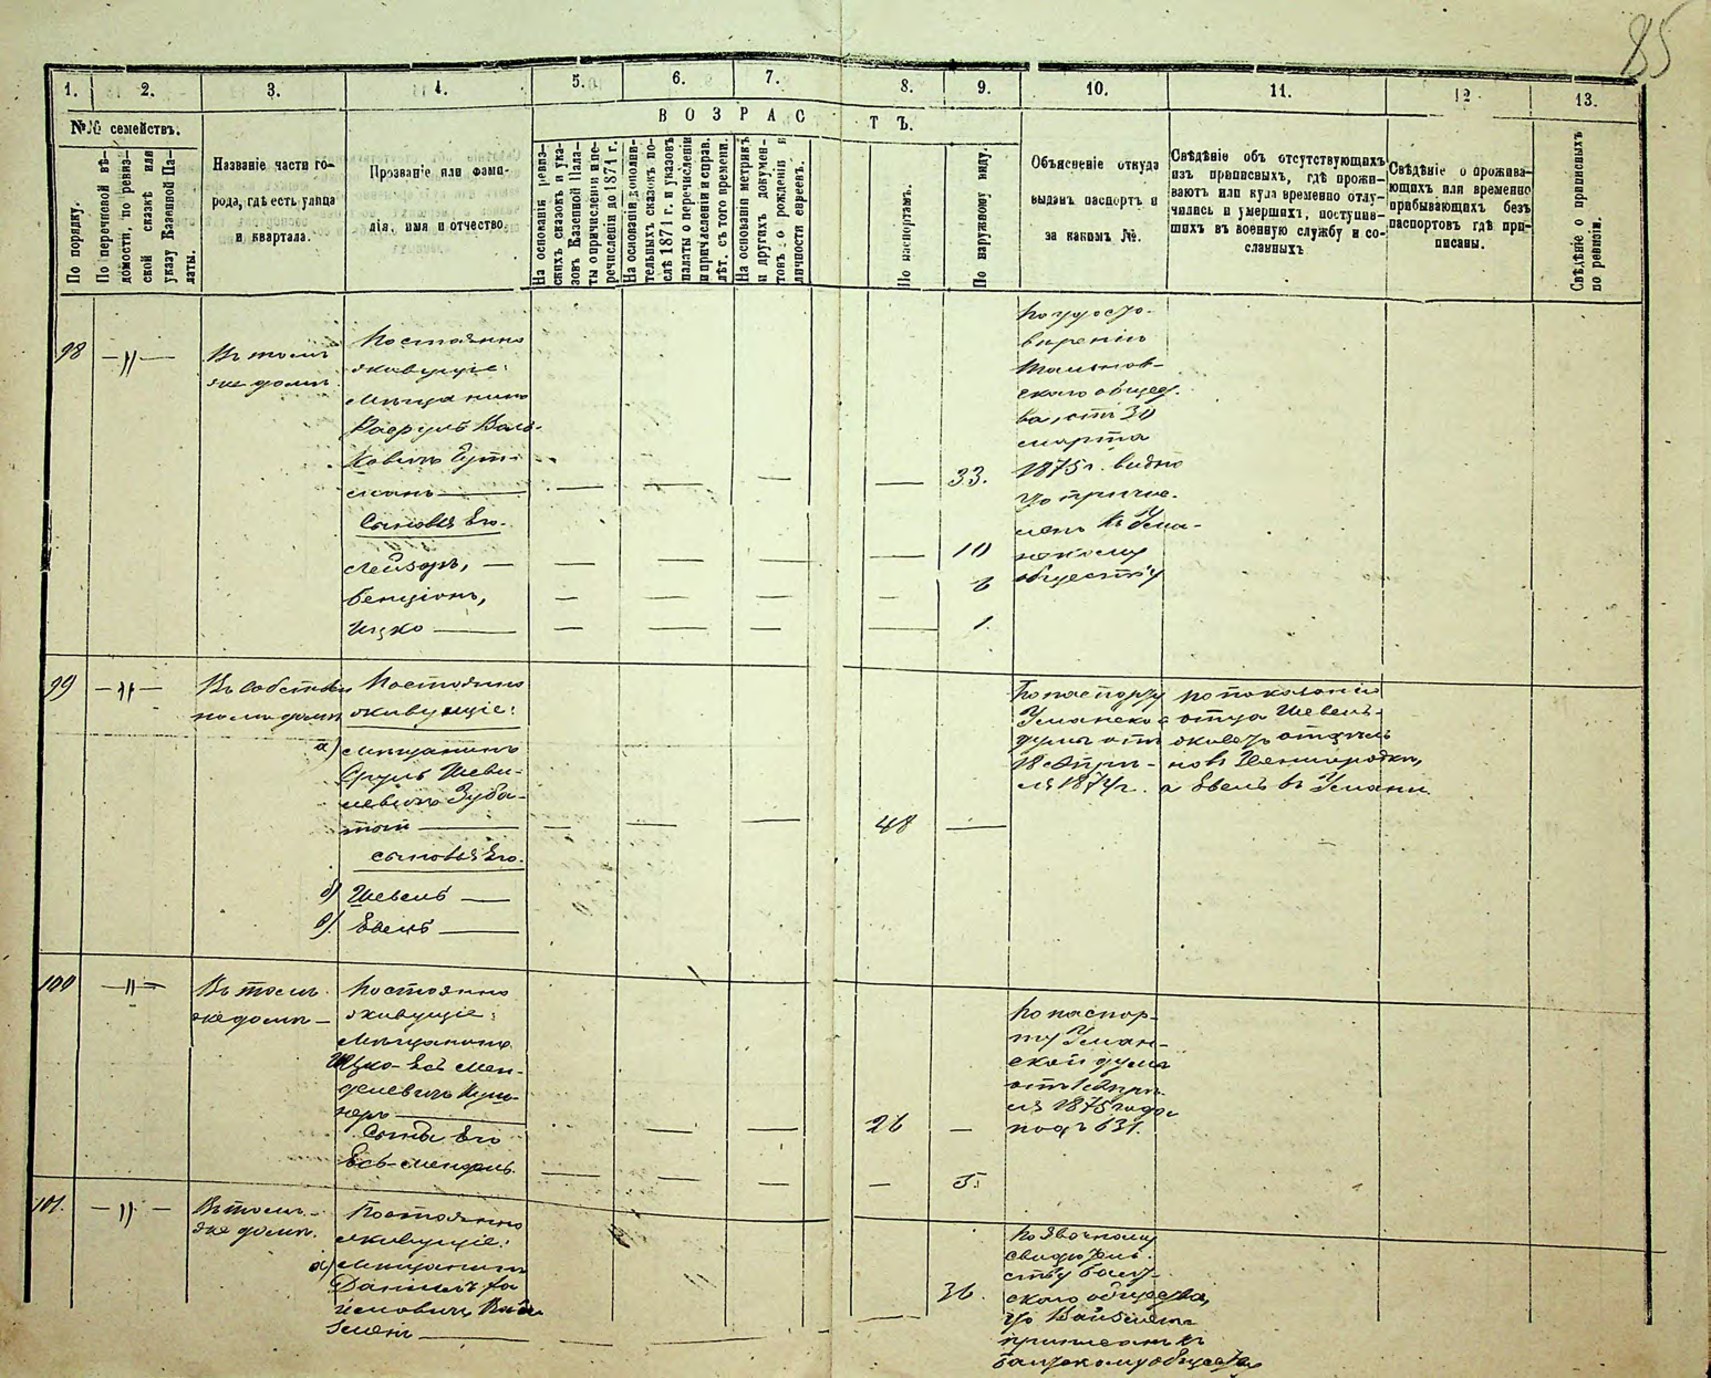 85
1. 2. 3. 4. 5. 6. 7. 8. 9. 10. 11. 12 13.
№№ семействъ.
ВОЗРАСТЪ.
По порядку.
По перечневой вѣ-
домости, по ревиз-
ской сказкѣ или
указу Казенной Па-
латы.
Названіе части го-
рода, гдѣ есть улица
и квартала.
Прозваніе или фами-
лія, имя и отчество.
На основаніи ревиз-
скихъ сказокъ и ука-
зовъ Казенной Пала-
ты о причисленіи и пе-
речисленіи до 1871 г.
На основаніи дополни-
тельныхъ сказокъ по-
слѣ 1871 г. и указовъ
палаты о перечисленіи
и причисленіи и справ.
лѣт. съ того времени.
На основаніи метрикъ
и другихъ докумен-
товъ о рожденіи и
личности евреевъ.
По паспортамъ.
По наружному виду.
Объясненіе откуда
выданъ паспортъ и
за какимъ №.
Свѣдѣніе объ отсутствующихъ
изъ приписныхъ, гдѣ прожи-
ваютъ или куда временно отлу-
чились и умершихъ, поступив-
шихъ въ военную службу и со-
сланныхъ
Свѣдѣніе о прожива-
ющихъ или временно
прибывающихъ безъ
паспортовъ гдѣ при-
писаны.
Свѣдѣніе о приписныхъ
по ревизіи.
98 — „ —
Въ томъ
же домѣ
Постоянно
живущіе:
мѣщанинъ
Сыновья Его.
Лейзоръ, —
Бенціонъ,
Ицко —
33.
10
6
1.
По удосто-
вѣренію
скаго общес.
ва, отъ 30
марта
1875 г. видно
что причис-
ленъ къ Ума-
нскому
обществу
99 — „ —
Въ собствен
номъ домѣ
Постоянно
живущіе:
а) мѣщанинъ
Сруль Шеви-
левичъ Зуба-
тый —
сыновья Его.
б) Шевель —
в) Евель —
48 —
По паспорту
Уманско
думы отъ
18 Апрѣ-
ля 1874 г.
по показанію
отца Шевель
живетъ
въ Звенигородкѣ,
а Евель въ Умани.
100 — „ —
Въ томъ
же домѣ —
Постоянно
живущіе:
Мѣщанинъ
Ицко-Іось Мен-
делевичъ Куш-
неръ —
Сынъ Его
Іось-Мендель.
26 —
— 5.
По паспор-
ту Уман-
ской думы
отъ 1 Апрѣ-
ля 1875 года
подъ 631.
101. — „ —
Въ томъ
же домѣ.
Постоянно
живущіе:
а) Мѣщанинъ
Даніилъ Ха
имовичъ Вай
36.
По явочному
свидѣтель-
ству Балт-
скаго общества,
что
приписанъ къ
Балтскому обществу